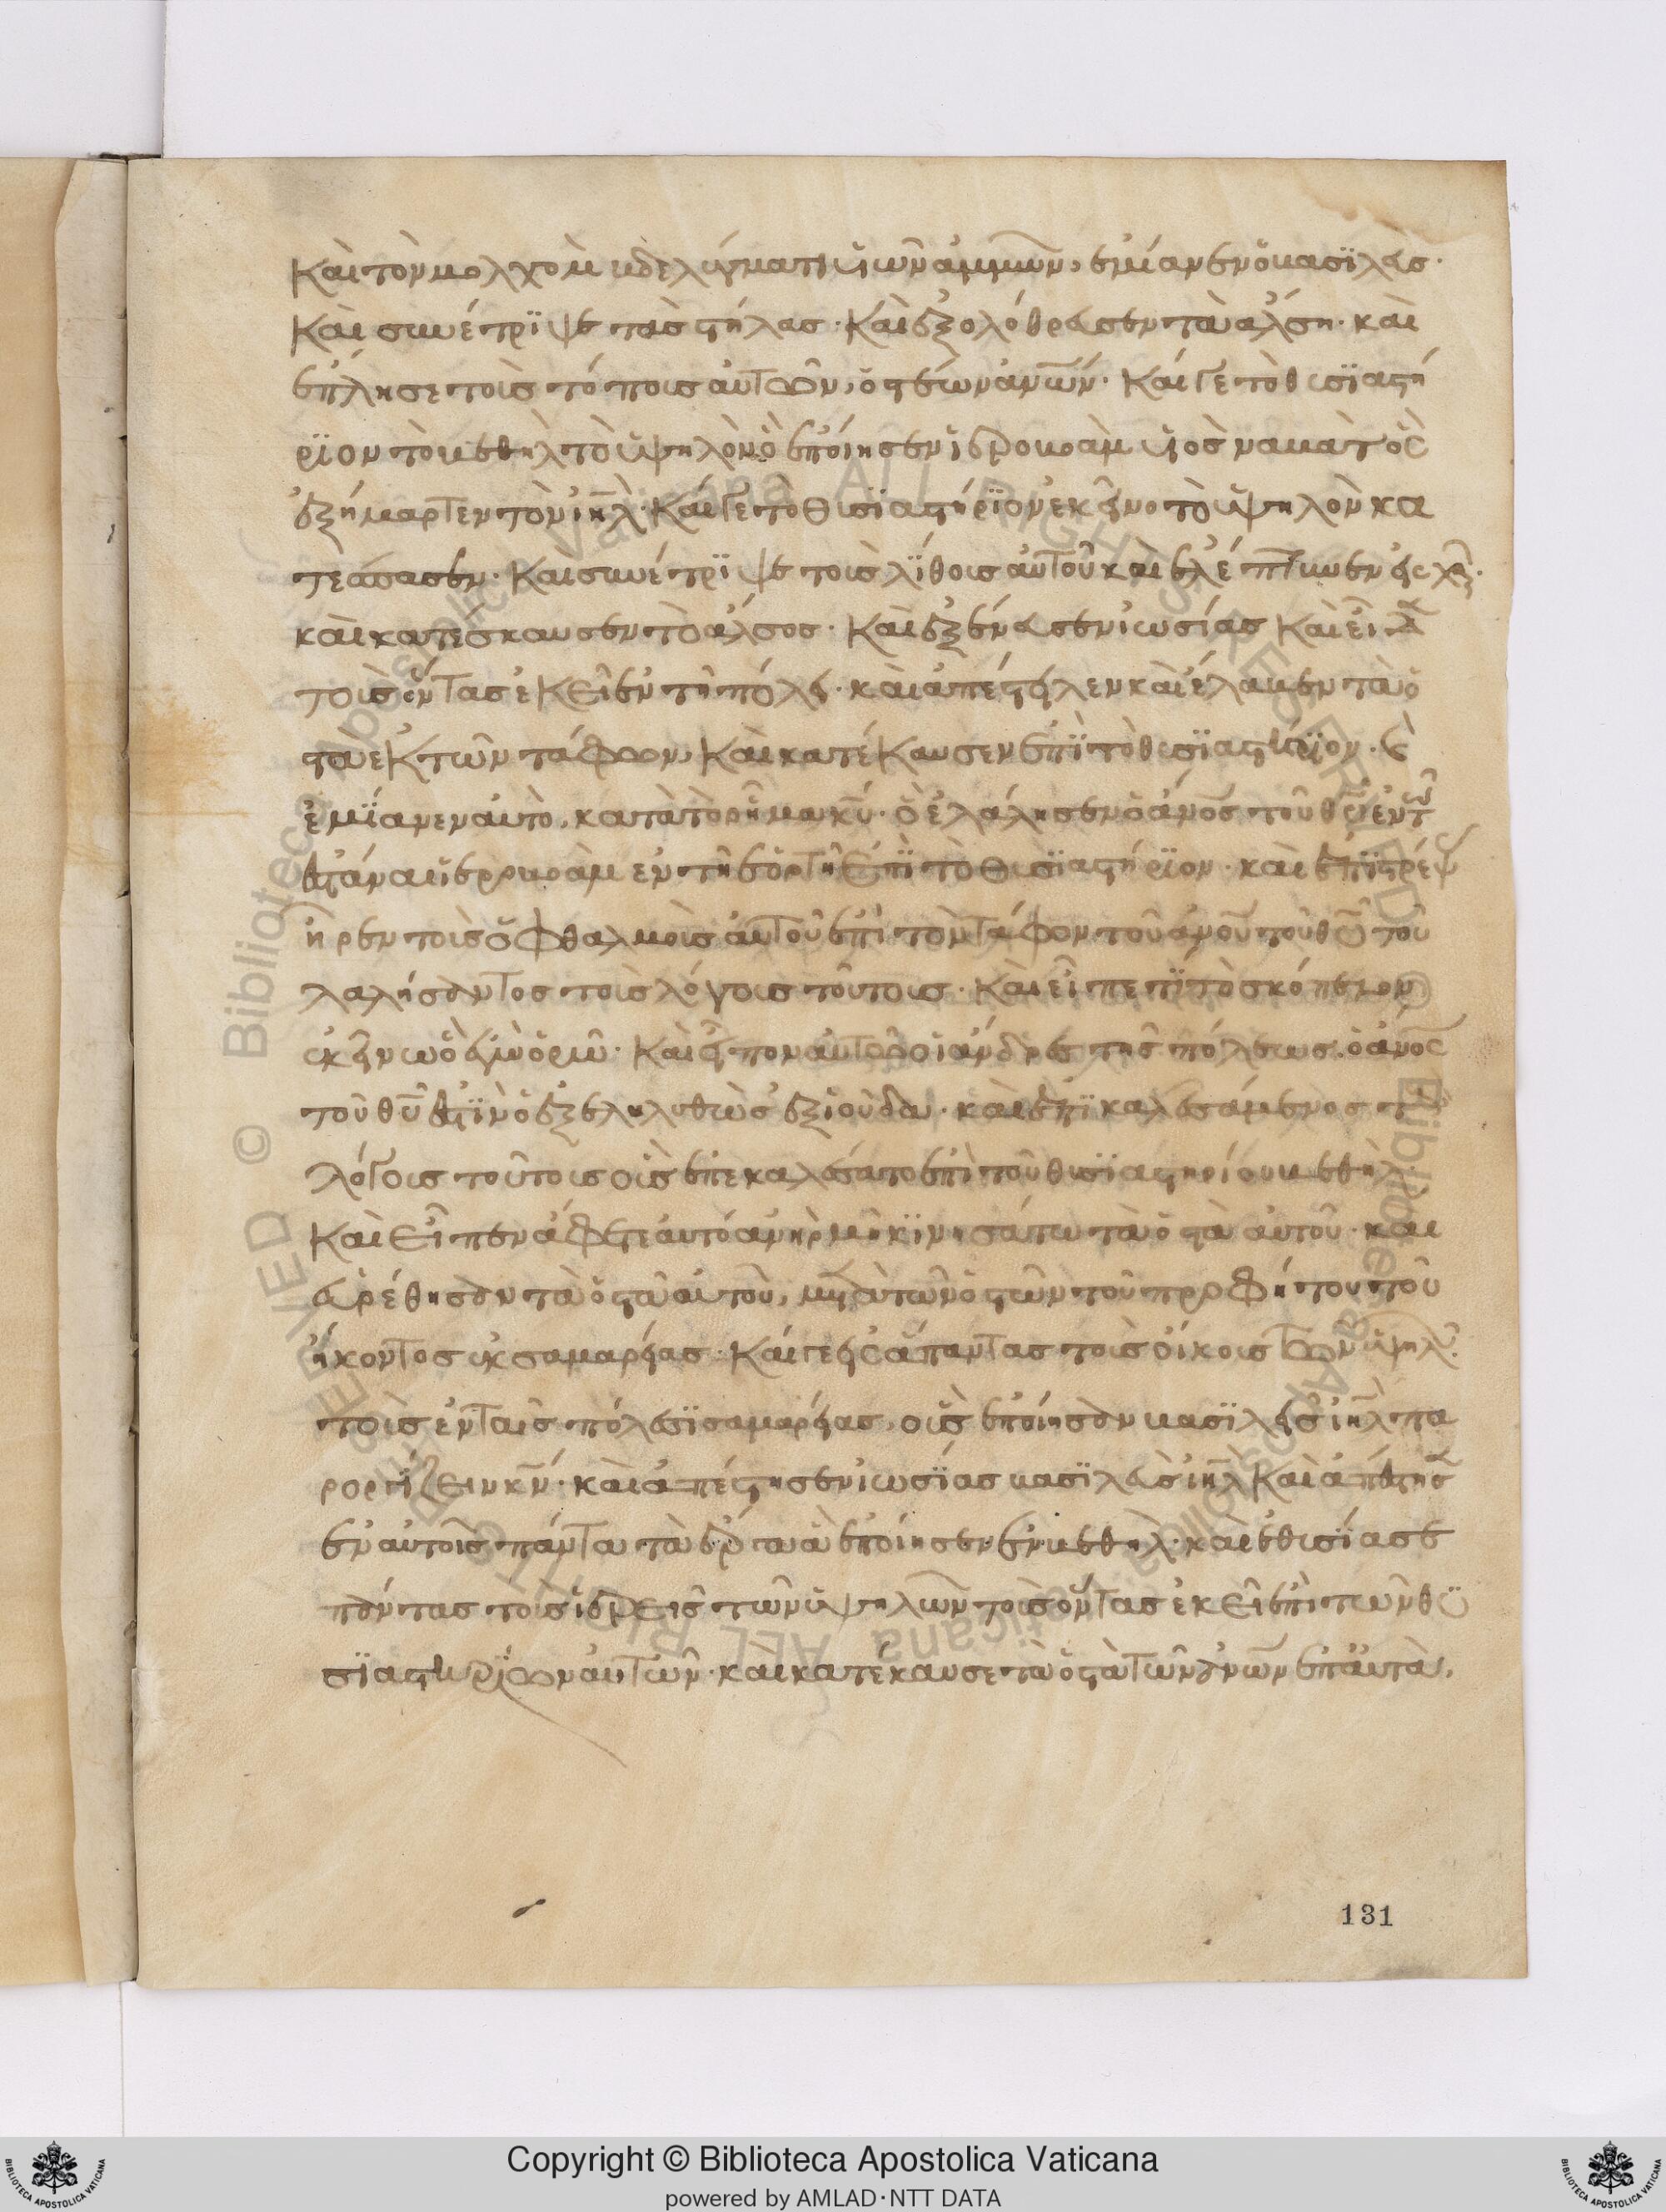 καὶ τὸν μολχομ βδελύγματι υἱῶν ἀμμὼν, ἐμίανεν ὁ βασϊλεύς·
Καὶ συνέτρϊψε τὰς στήλας· καὶ ἐξολόθρευσεν τὰ ἄλση· καὶ
ἔπλησε τοὺς τόπους αὐτῶν, ὀστέων ἀνων· Καί γε τὸ θυσϊαστή
ρϊον τὸ ἐν βεθὴλ τὸ ὑψηλὸν ὃ ἐποίησεν ἱεροβοὰμ υἱὸς ναβὰτ ὃς
ἐξήμαρτεν τὸν ιηλ· Καί γε τὸ θυσϊαστήρϊον ἐκεῖνο τὸ ὑψηλὸν κα
τέσπασεν· Καὶ συνέτρϊψε τοὺς λίθους αὐτοῦ καὶ ἐλέπτυνεν εἰς χοῦν·
καὶ κατέσκαυσεν τὸ ἄλσος· Καὶ ἐξένευσεν ϊωσίας Καὶ εἶδε
τοὺς ὄντας ἐκεῖ ἐν τῆ πόλει· καὶ ἀπέστειλεν καὶ ἔλαβεν τὰ ὀ
στὰ ἐκ τῶν τάφων, Καὶ κατέκαυσεν ἐπὶ τὸ θυσϊαστήρϊον· καὶ
ἐμίανεν αὐτὸ, κατὰ τὸ ρῆμα κυ· ὃ ἐλάλησεν ὁ ἀνος τοῦ θυ ἐν τῶ
ἑστάναι ἱεροβοὰμ ἐν τῆ ἑορτῆ ἐπὶ τὸ θυσϊαστήρϊον· καὶ ἐπιστρέψας
ἦρεν τοὺς ὀφθαλμοὺς αὐτοῦ ἐπὶ τὸν τάφον τοῦ ἀνου τοῦ θυ τοῦ
λαλήσαντος τοὺς λόγους τούτους· Καὶ εἶπε τί τὸ σκόπελον
ἐκεῖνο ὃ ἐγὼ ὁρῶ· Καὶ εἶπον αὐτῶ οἱ ἄνδρες τῆς πόλεως· ὁ ἀνος
τοῦ θυ ἐστὶν ὁ ἐξεληλυθὼς ἐξ ϊούδα· καὶ ἐπϊκαλεσάμενος τοὺς
λόγους τούτους οὓς ἐπεκαλέσατο ἐπὶ τοῦ θυσϊαστηρίου βεθήλ·
Καὶ εἶπεν ἄφετε αὐτὸ ἀνὴρ μὴ κϊνησάτω τὰ ὀστὰ αὐτοῦ· καὶ
εὑρέθησαν τὰ ὀστᾶ αὐτοῦ, μετὰ τῶν ὀστῶν τοῦ προφήτου τοῦ
ἥκοντος ἐκ σαμαρείας· Καί γε εἰς ἅπαντας τοὺς οἴκους τῶν ὑψηλῶν
τοὺς ἐν ταῖς πόλεσϊ σαμαρείας, οὓς ἐποίησαν βασϊλεῖς ιηλ πα
ροργίζειν κν· καὶ ἀπέστησεν ϊωσίας βασϊλεὺς ιηλ Καὶ ἀπέστησ
ἐν αὐτοῖς πάντα τὰ ἔργα ἃ ἐποίησεν ἐν βεθήλ· καὶ ἐθυσίασε
πάντας τοὺς ἱερεῖς τῶν ὑψηλῶν τοὺς ὄντας ἐκεῖ ἐπὶ τῶν θυ
σϊαστηρίων αὐτῶν· καὶ κατέκαυσε τὰ ὀστὰ τῶν ἀνων ἐπ' αὐτά,
131
Copyright © Biblioteca Apostolica Vaticana
powered by AMLAD·NTT DATA